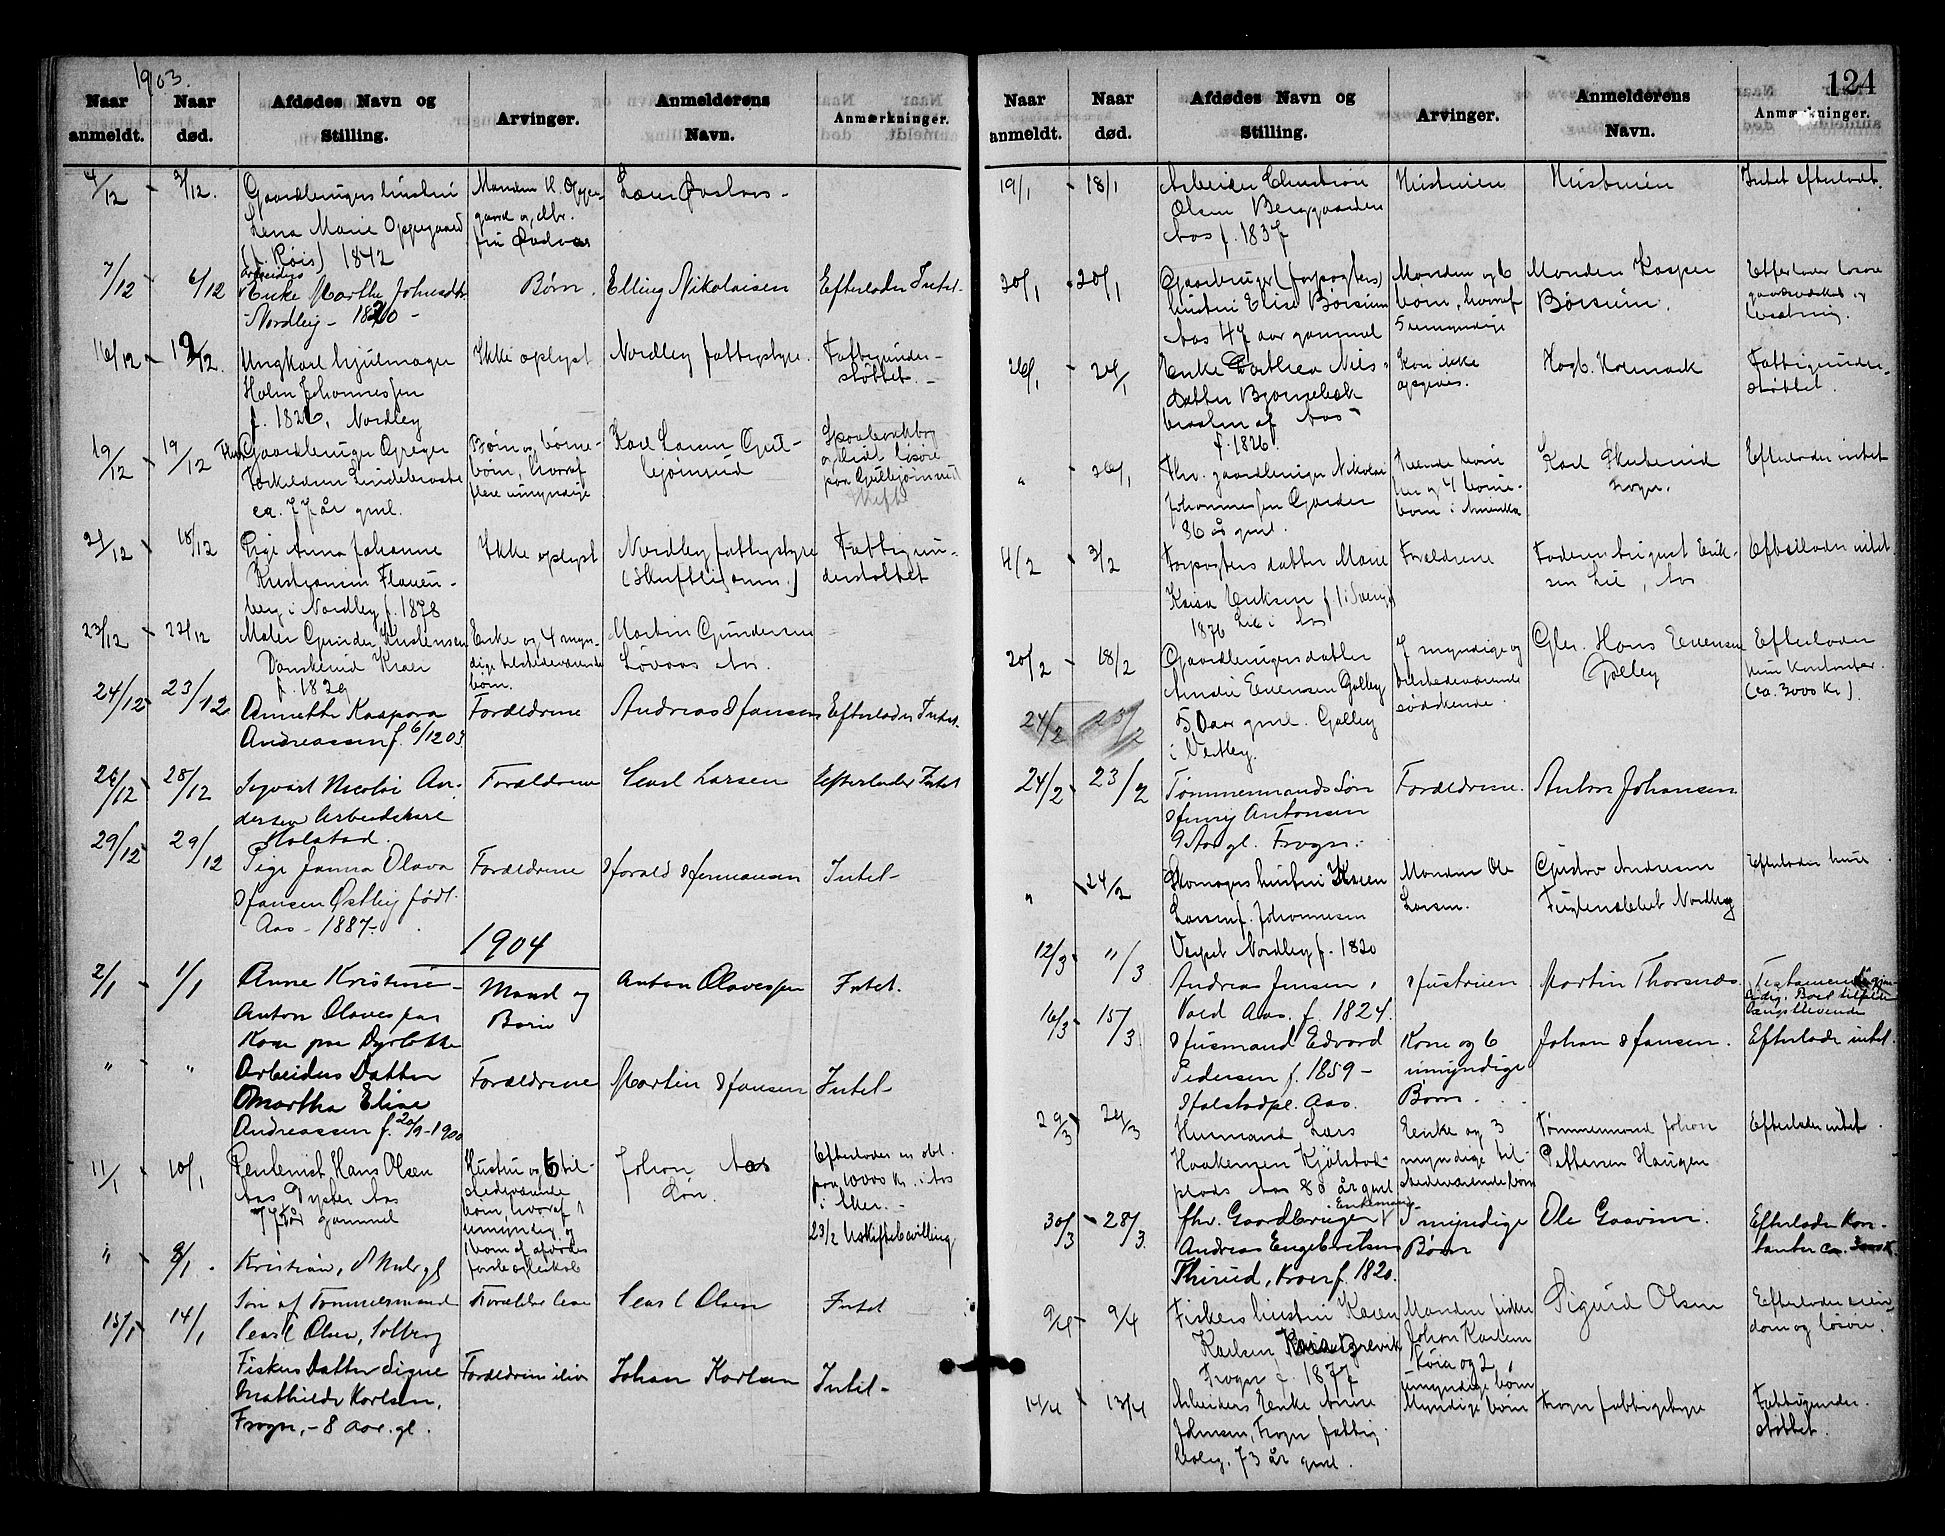 1903.
Naar anmeldt. Naar død. Afdødes Navn og Stilling. Arvinger. Anmelderens Navn. Anmærkninger.
4/12 - 3/12. Gaardbrugers hustru
Lena Marie Oppegaard
(f. Røis) 1842
Manden K. Oppe-
gaard og
Lars
7/12 - 6/12 arbeiders
Enke Marthe Johnsdtr
Nordby - 1820 -
Børn. Elling Nikolaisen Efterlader Intet.
16/12 - 12/12. Ungkarl hjulmager
Holm Johannessen
f. 1826, Nordby
Ikke oplyst Nordby fattigstyre. Fattigunder-
støttet. -
19/12 - 19/12 Gaardbruger
Lindebraate
ca. 77 år gml.
Børn og børne-
børn, hvoraf
flere umyndige
Karl Larsen Gul-
bjørnrud
Sparbankbog
og lidt løsøre
paa Gulbjørnrud
Skifte
21/12 - 18/12 Pige Anna Johanne
Flauen-
berg i Nordby f. 1878
Ikke oplyst Nordby fattigstyre Fattigun-
derstøttet
23/12 - 22/12 Maler Gunder Kristensen
Danskerud Kraer
f. 1829
Enke og 4 myn-
dige tilstedeværende
børn.
Martin Gundersen
Løvaas Aas.
24/12 - 23/12 Annette Kaspara
Andreassen f. 6/12 03
Forældrene Andreas Hansen Efterlader Intet.
26/12 - 28/12 Sigvart Nicolai An-
dersen Arbeidskarl
Holstad.
Forældrene Carl Larsen Efterlader Intet
29/12 29/12 Pige Janna Olava
Hansen Østby født
Aas - 1887 -
Forældrene Harald Hermansen Intet -
1904
2/1 - 1/1 Anne Kristine
Anton Olavessen
Kone paa Dyrløkke
Mand og
Børn
Anton Olavessen Intet.
" " Arbeiders Datter
Martha Elise
Andreassen f. 20/9-1900
Forældrene Martin Hansen Intet -
11/1 - 10/1 Rentenist Hans Olsen
Aas Dyster Aas
77 år gammel
Hustru og 6 til-
stedeværende
børn, hvoraf 1
umyndig og
1 barn af afdødes
første ægteskab
Johan Aas
Søn.
Efterlader en obl.
paa 10000 Kr. i Aas
23/2 Uskiftebevilling
" 8/1. Kristian,
15/1 14/1 Søn af Tømmermand
Carl Olsen, Solberg
Forældre leve Carl Olsen Intet
Fiskers Datter Signe
Mathilde Karlsen,
Frogn, - 8 Aar. gl.
Forældrene i live Johan Karlsen Intet -
124
Naar anmeldt. Naar død. Afdødes Navn og Stilling. Arvinger. Anmelderens Navn. Anmærkninger.
19/1 - 18/1 Arbeider Christian
Olsen Berggaarden
Aas f. 1837
Hustruen Hustruen Intet efterladt.
20/1 20/1 Gaardbruger (forpagters)
hustru Elise Børsum
Aas 47 aar gammel
Manden og 6
børn, hvoraf
5 umyndige
Manden Kasper
Børsum.
Efterlader løsøre
gaardredskab og
besætning.
26/1 - 24/1 Enke Dorthea Niels-
datter Bjørnebek
brasken af Aas
f. 1826
Kan ikke
opgives.
Hogb. Kolmark Fattigunder-
støttet.
" - 26/1 Fhv. gaardbruger Nikolai
Johannessen Garder
86 år gml.
børn i Amerika
Karl Skuterud
Frogn.
Efterlader intet
4/2 - 3/2 Forpagters datter Marie
Kaisa Eriksen f. i Sverige
1876 Lie i Aas
Forældrene Faderen August Erik-
sen Lie, Aas
Efterlader intet
20/2 - 18/2 Gaardbrugers datter
Amalie Evensen Galby
50 aar gml. Galby
i Vestby.
7 myndige og
tilstedeværende
søskende.
Gbr. Hans Evensen
Galby
Efterlader
kun kontanter
(ca. 3000 Kr).
24/2 23/2
24/2 - 23/2 Tømmermands Søn
Henry Antonsen
9 Aar gl. Frogn.
Forældrene. Anton Johansen
" 24/2 Skomagers hustru Karen
Larsen f. Johannesen
Vexet Nordby f. 1820
Manden Ole
Larsen.
Gustav Andresen
Fuglesletet Nordby
Efterlader huse
12/3 11/3 Andreas Jensen,
Vold Aas. f. 1824.
Hustruen Martin Thorsnæs. Testamente gjen-
sidig. Boet tilfalder
længstlevende
16/3 15/3 Husmand Edvard
Pedersen f. 1859 -
Holstadpl. Aas.
Kone og 6
umyndige
Børn.
Johan Hansen. Efterlader intet.
29/3 24/3 Husmand Lars
Haakensen Kjølstad-
plads Aas 80 år gml
Enke og 3
myndige til-
stedeværende børn
Tømmermand Johan
Pettersen Haugen
Efterlader intet.
30/3 - 28/3 fhv. Gaardbruger, Enkemand
Andreas Engebretsen
Thirud, Kroer f. 1820.
myndige
Børn
Ole Gaarim. Efterlader Kon-
tanter ca.
9/4 9/4 Fiskers hustru Karen
Karlsen
Frogn f. 1877
Manden fisker
Johan Karlsen
og 2
umyndige børn
Sigurd Olsen Efterlader eien-
dom og løsøre.
14/4 13/4 Arbeiders Enke Anne
Johnsen, Frogn fattig-
bolig. 73 år gml.
Myndige børn Frogn fattigstyre Fattigunder-
støttet.